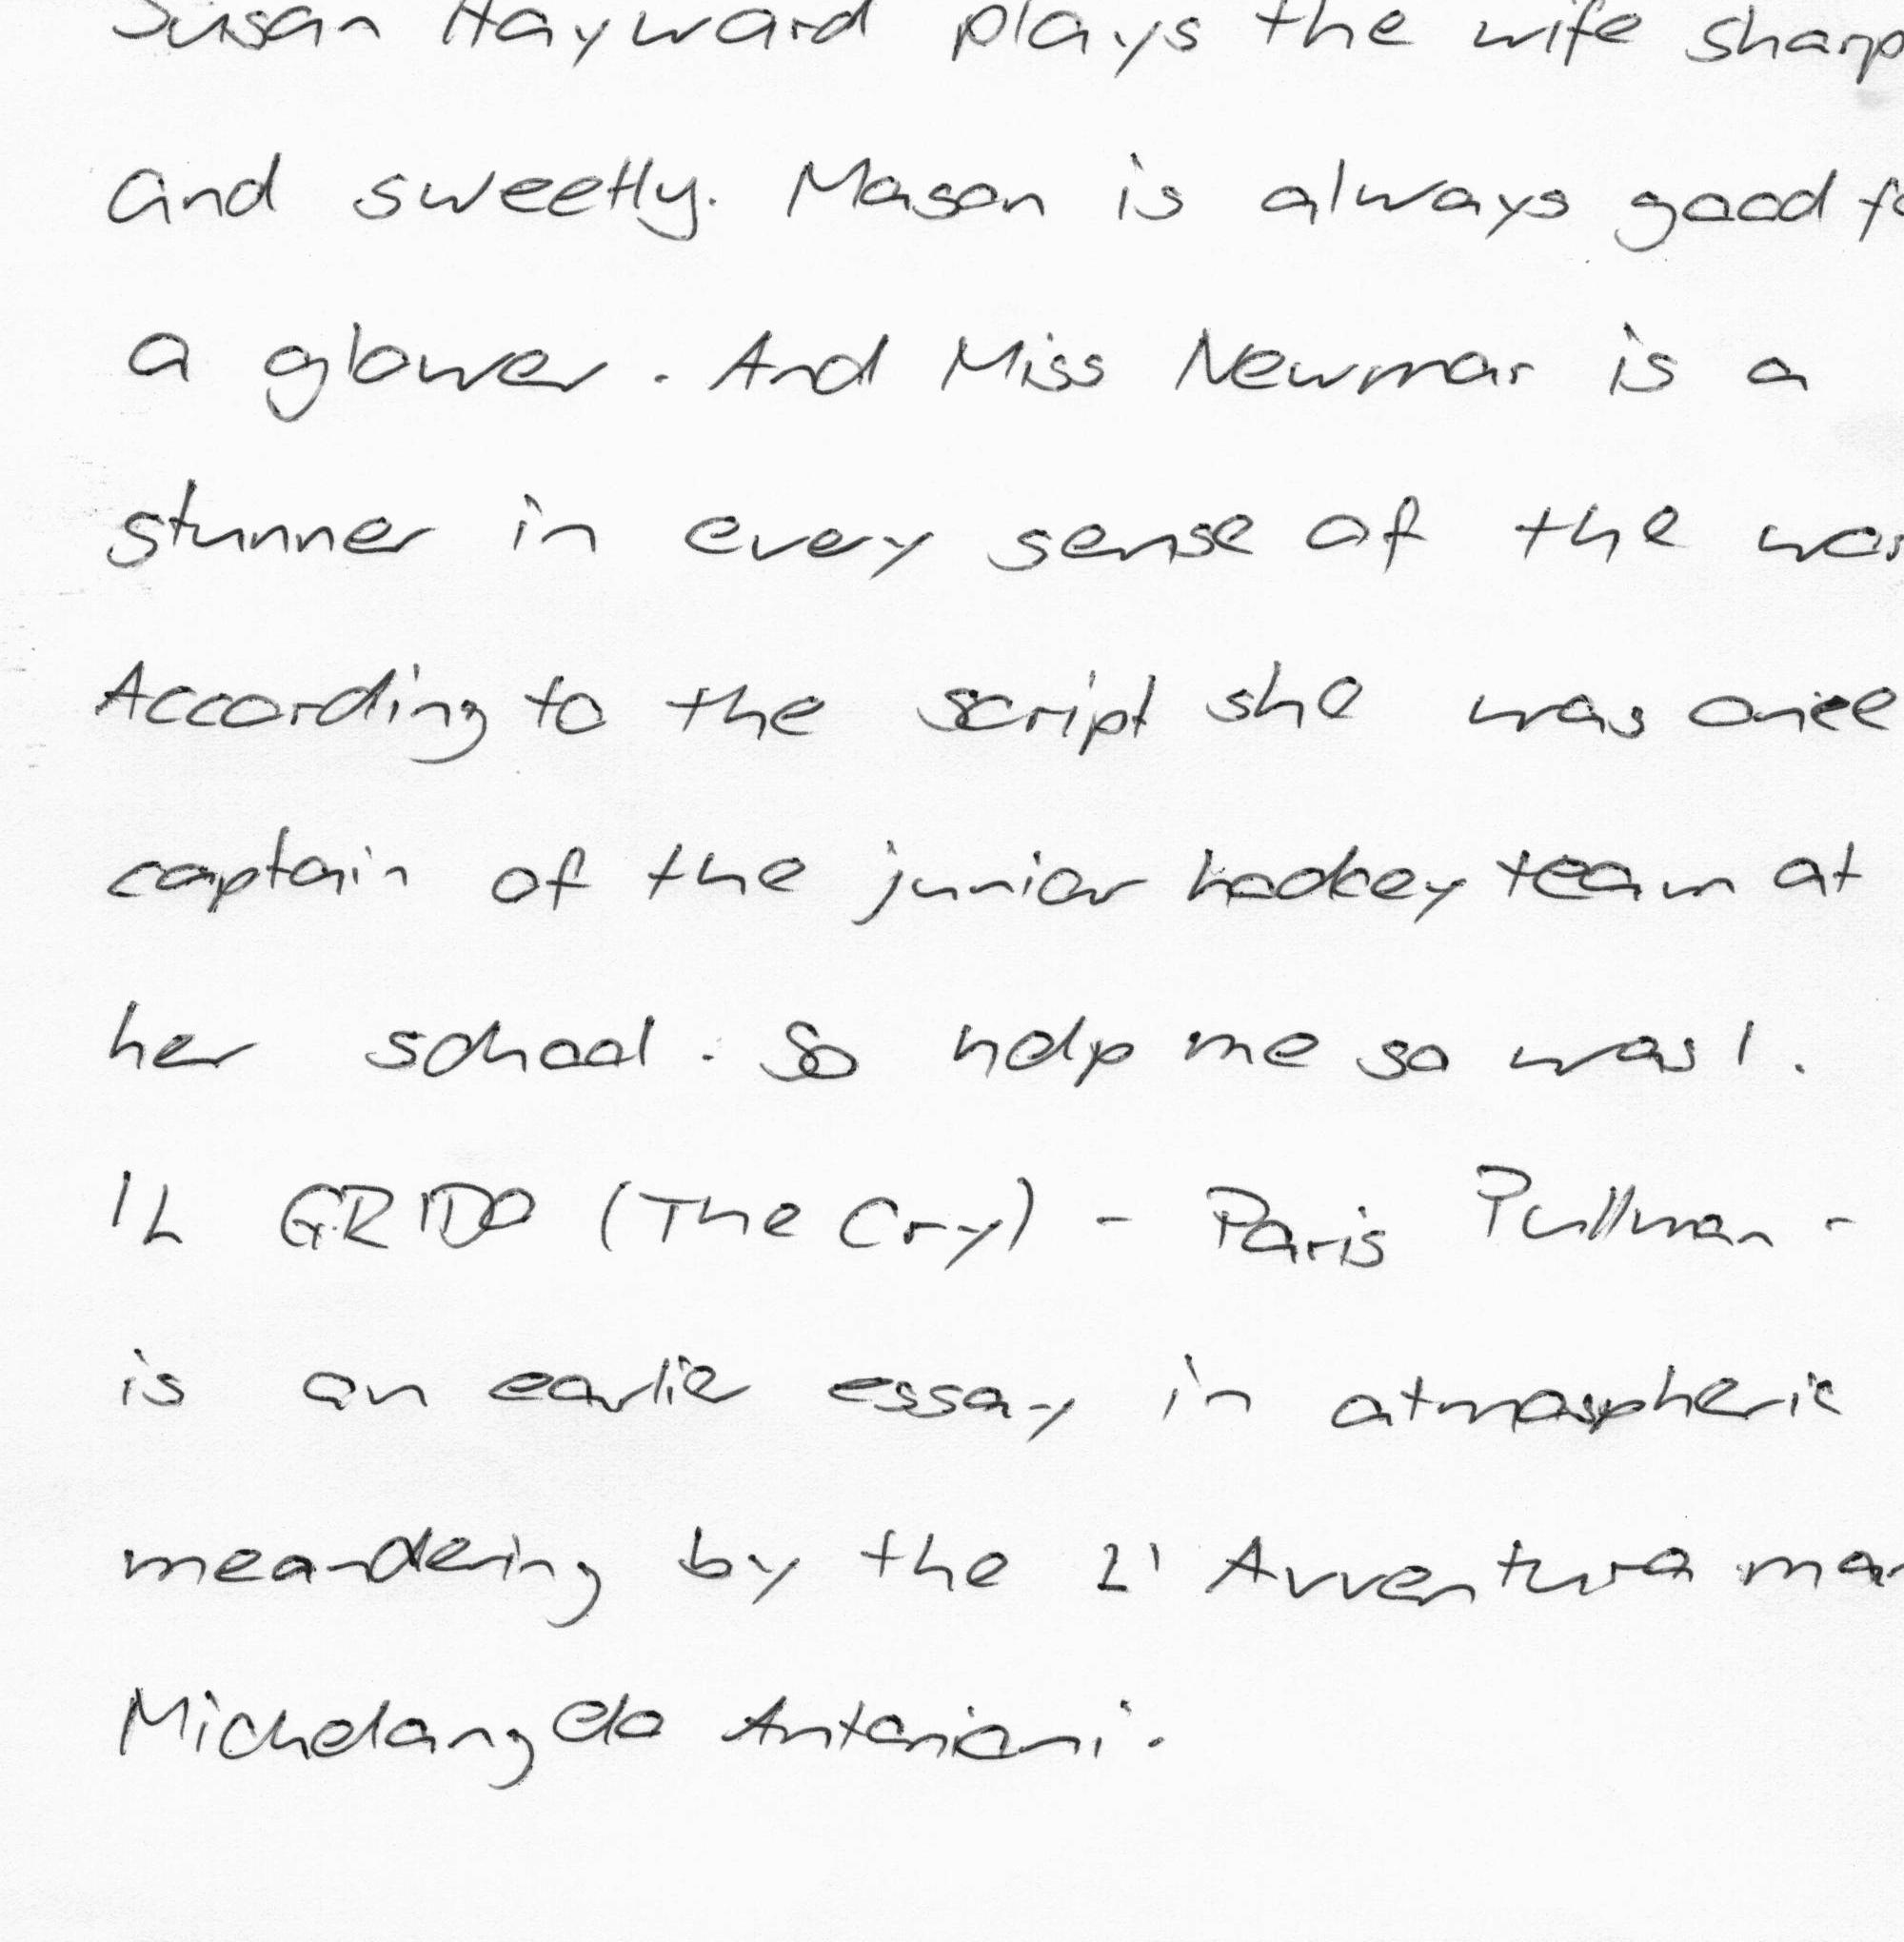 Susan Hayward plays the wife sharp
and sweetly. Mason is always good fo
a glower. And Miss Newmar is a
stunner in every sense of the wor
According to the script she was once
captain of the junior hockey team at
her school. So help me so was I.
IL GRIDO (The Cry) - Paris Pullman -
is an earlier essay in atmospheric
meandering by the L' Avventura man
Michelangelo Antonioni.